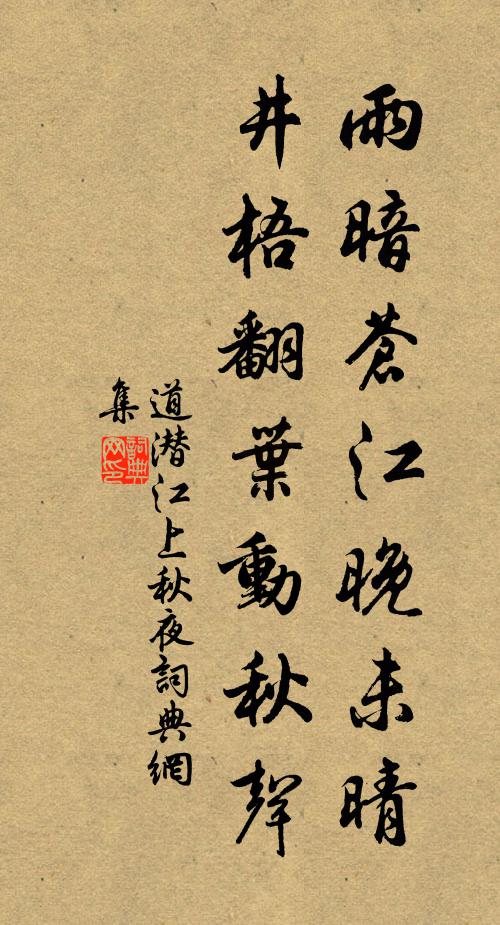 雨暗蒼江晚未晴
井梧翻葉動秋聲
道潛江上秋夜詞典網
集
詞典網印